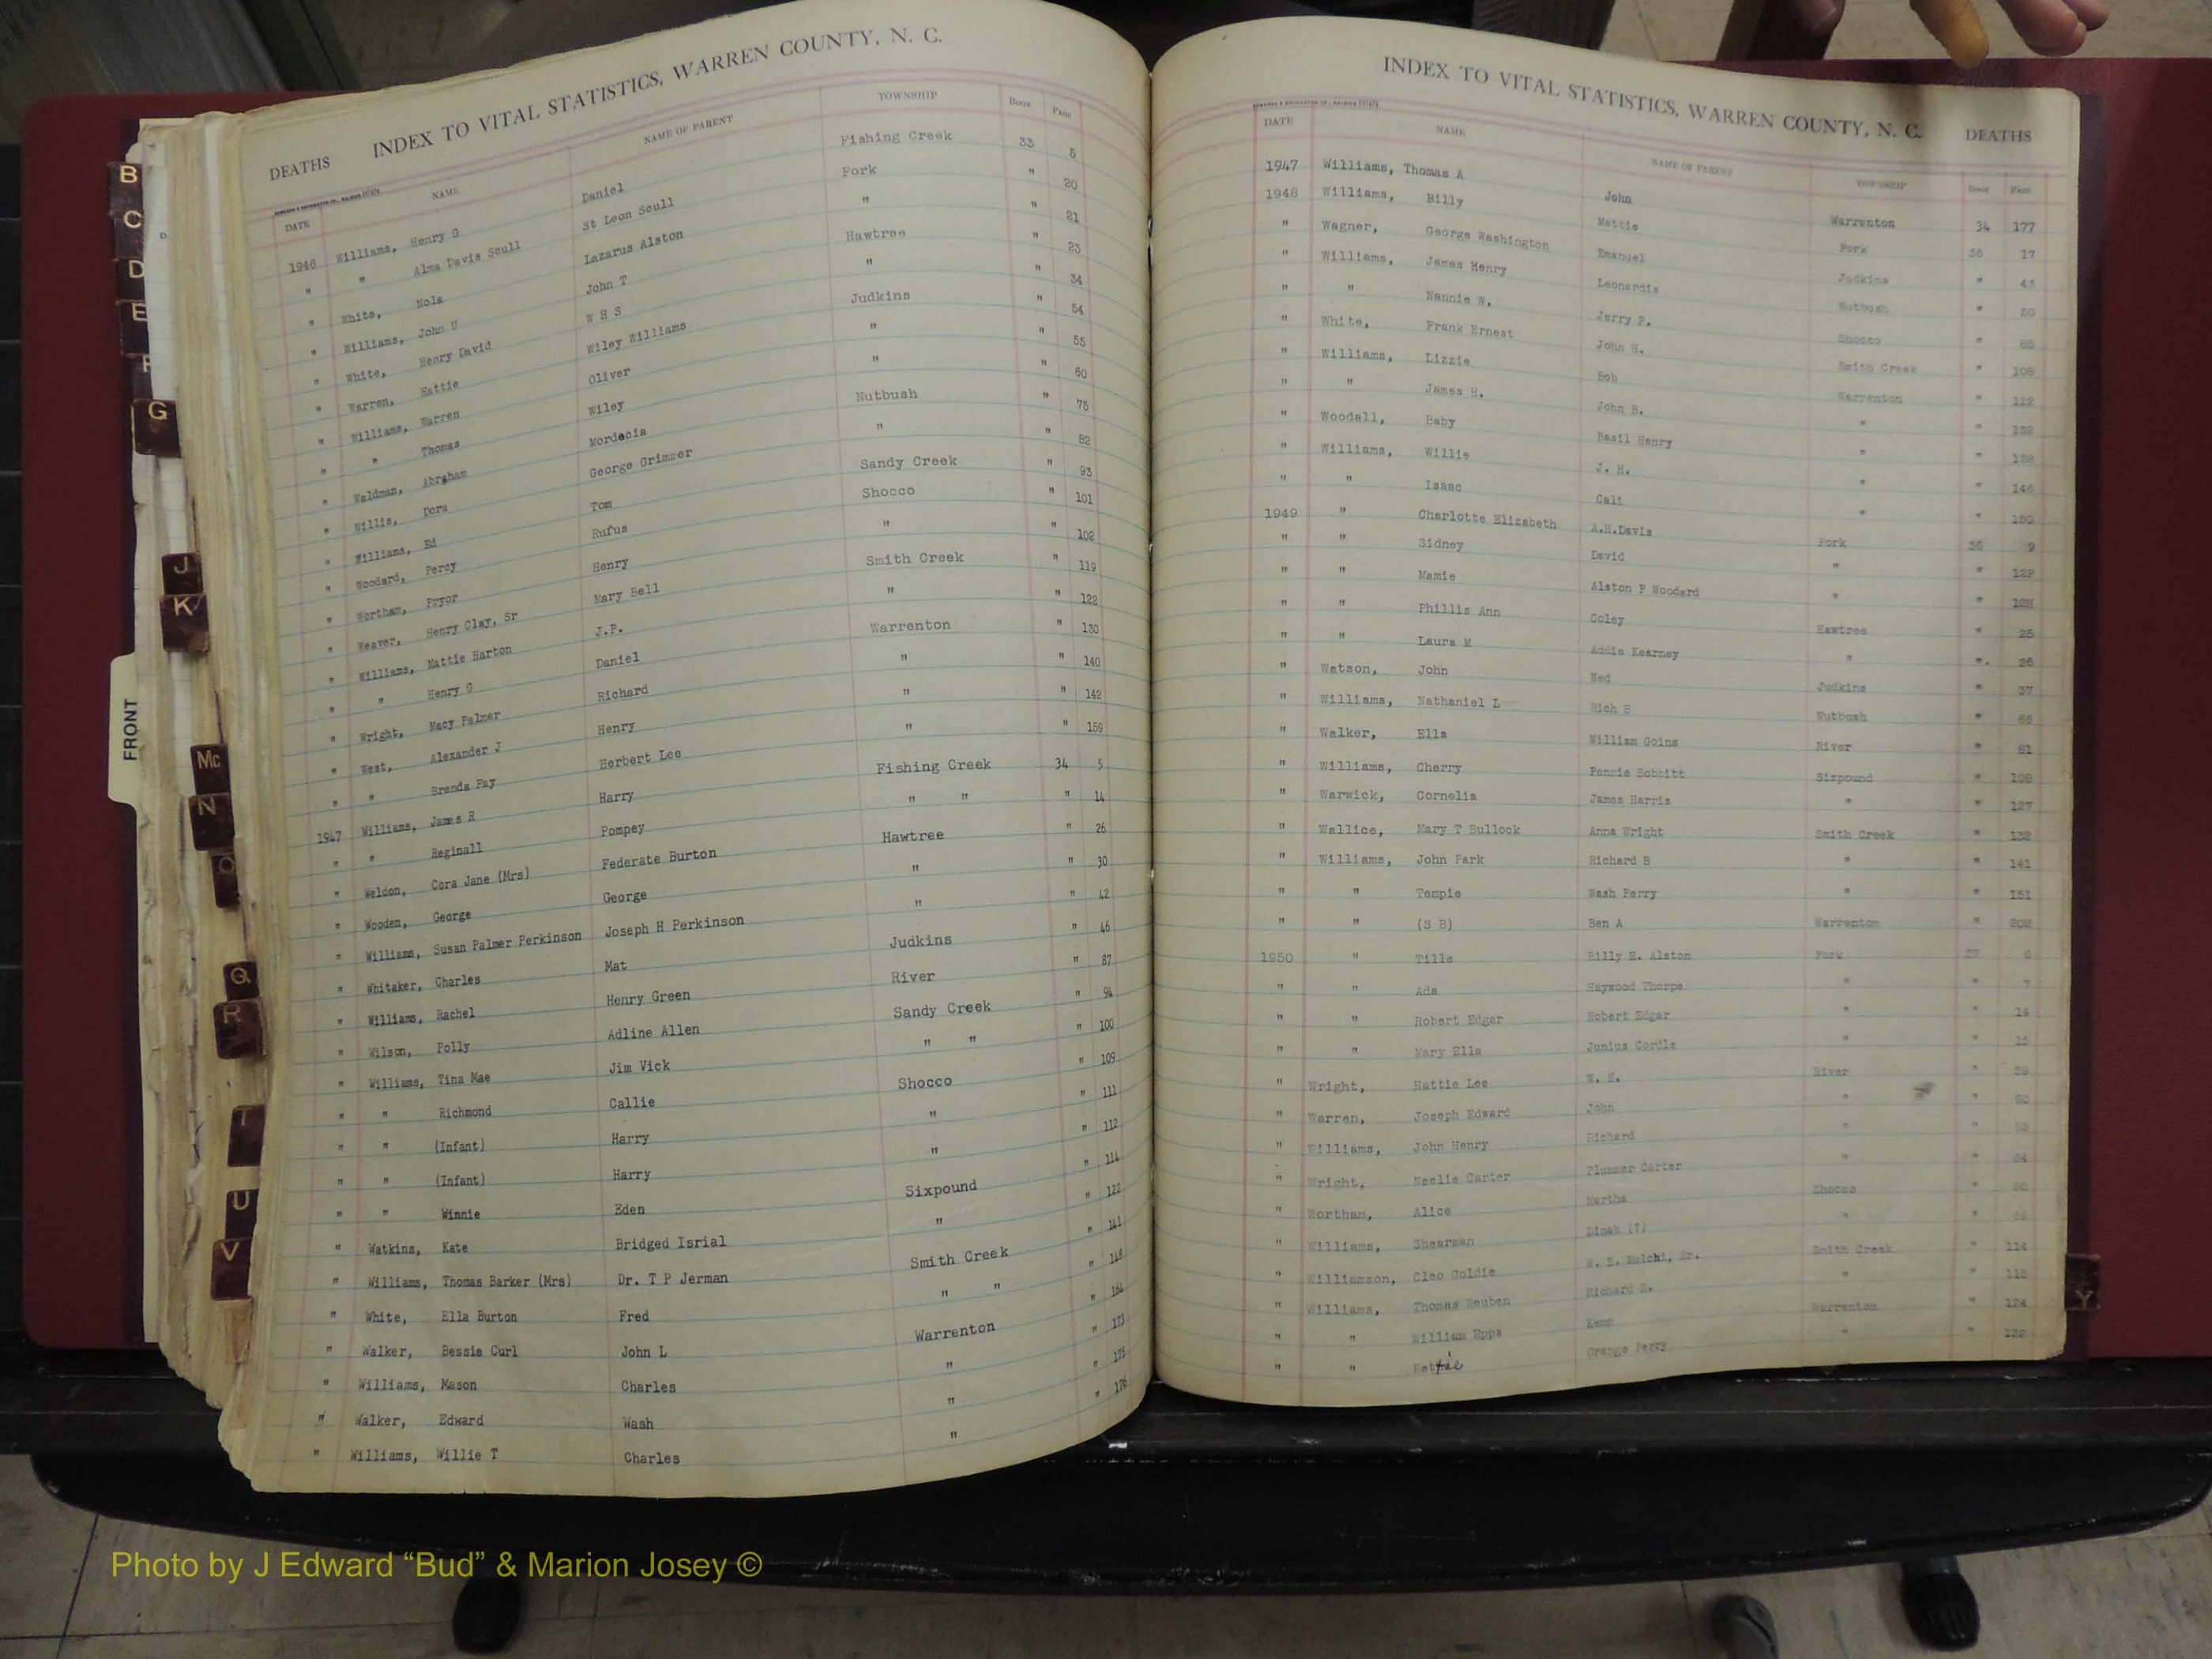 INDEX TO VITAL STATISTICS, WARREN COUNTY, N. C.
DEATHS
DATE NAME NAME OF PARENT TOWNSHIP BOOK PAGE
1946 Williams, Henry G Daniel Fishing Creek 33 6
" " Alma Davis Scull St Leon Scull Fork " 20
" White, Nola Lazarus Alston " " 21
" Williams, John U John T Hawtree " 23
" White, Henry David W H S " " 34
" Warren, Hattie Wiley Williams Judkins " 54
" Williams, Warren Oliver " " 55
" " Thomas Wiley " " 60
" Waldman, Abraham Mordecia Nutbush " 75
" Willis, Dora George Grimmer " " 82
" Williams, Ed Tom Sandy Creek " 93
" Woodard, Percy Rufus Shocco " 101
" Wortham, Pryor Henry " " 102
" Weaver, Henry Clay, Sr Mary Bell Smith Creek " 119
" Williams, Mattie Harton J.P. " " 122
" " Henry G Daniel Warrenton " 130
" Wright, Macy Palmer Richard " " 140
" West, Alexander J Henry " " 142
" " Brenda Fay Herbert Lee " " 159
1947 Williams, James R Harry Fishing Creek 34 5
" " Reginall Pompey " " " 14
" Weldon, Cora Jane (Mrs) Federate Burton Hawtree " 26
" Wooden, George George " " 30
" Williams, Susan Palmer Perkinson Joseph H Perkinson " " 42
" Whitaker, Charles Mat Judkins " 46
" Williams, Rachel Henry Green River " 87
" Wilson, Polly Adline Allen Sandy Creek " 94
" Williams, Tina Mae Jim Vick " " " 100
" " Richmond Callie Shocco " 109
" " (Infant) Harry " " 111
" " (Infant) Harry " " 112
" " Winnie Eden Sixpound " 114
" Watkins, Kate Bridged Isrial " " 122
" Williams, Thomas Barker (Mrs) Dr. T P Jerman Smith Creek " 141
" White, Ella Burton Fred " " " 148
" Walker, Bessie Curl John L Warrenton " 164
" Williams, Mason Charles " " 173
" Walker, Edward Wash " " 175
" Williams, Willie T Charles " " 176
INDEX TO VITAL STATISTICS, WARREN COUNTY, N. C.
DEATHS
DATE NAME NAME OF PARENT TOWNSHIP BOOK PAGE
1947 Williams, Thomas A John Warrenton 34 177
1948 Williams, Billy Mattie Fork 17
" Wagner, George Washington Emanuel Judkins " 43
" Williams, James Henry Leonardis Nutbush "
" " Nannie W. Jerry P. Shocco "
" White, Frank Ernest John H. Smith Creek " 108
" Williams, Lizzie Bob Warrenton " 112
" " James H. John B. " "
" Woodall, Baby Basil Henry " "
" Williams, Willie J. H. " " 146
" " Isaac Cali " "
1949 " Charlotte Elizabeth A.H.Davis Fork 9
" " Sidney David " "
" " Mamie Alston P Woodard " "
" " Phillis Ann Coley Hawtree " 25
" " Laura M Addie Kearney " " 26
" Watson, John Ned Judkins " 37
" Williams, Nathaniel L Rich B Nutbush "
" Walker, Ella William Goins River " 81
" Williams, Cherry Pennie Bobbitt Sixpound "
" Warwick, Cornelia James Harris " " 127
" Wallice, Mary T Bullock Anna Wright Smith Creek "
" Williams, John Park Richard B " " 141
" " Tempie Wash Perry " " 151
" " (S B) Ben A Warrenton " 202
1950 " Tille Billy E. Alston Fork 6
" " Ada Haywood Thorpe " " 7
" " Robert Edgar Robert Edgar " " 14
" " Mary Ella Junius Cordle " " 15
" Wright, Hattie Lee River "
" Warren, Joseph Edward John " "
" Williams, John Henry Richard " "
" Wright, Neelie Carter Plummer Carter " "
" Wortham, Alice Martha Shocco "
" Williams, Shearman Dinah (?) " "
" Williamson, Cleo Goldie Smith Creek "
" Williams, Thomas Reuben Richard " "
" " William Epps Kemp Warrenton " 124
" " Bettie Orange Perry " "
B
C
D
E
F
G
J
K
FRONT
Mc
N
O
Q
R
T
U
V
Y
Photo by J Edward “Bud” & Marion Josey ©